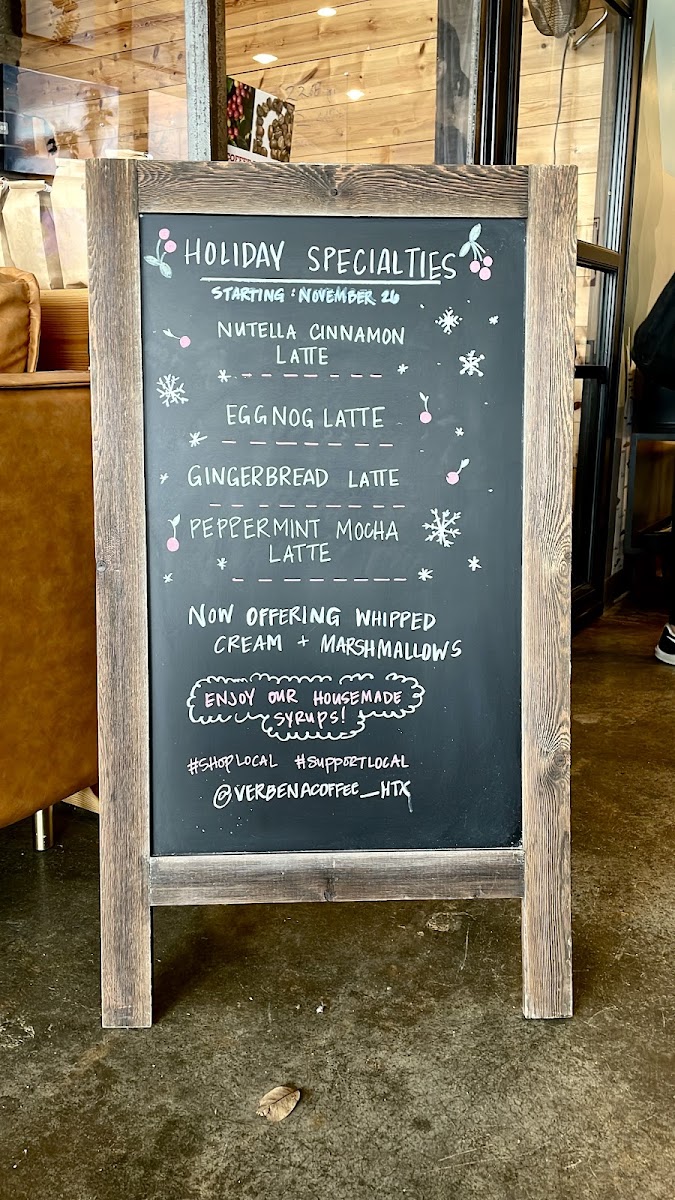 HOLIDAY SPECIALTIES
STARTING : NOVEMBER 26
NUTELLA CINNAMON
LATTE
EGGNOG LATTE
GINGERBREAD LATTE
PEPPERMINT MOCHA
LATTE
NOW OFFERING WHIPPED
CREAM + MARSHMALLOWS
ENJOY OUR HOUSEMADE
SYRUPS!
#SHOPLOCAL #SUPPORTLOCAL
@VERBENACOFFEE_HTX